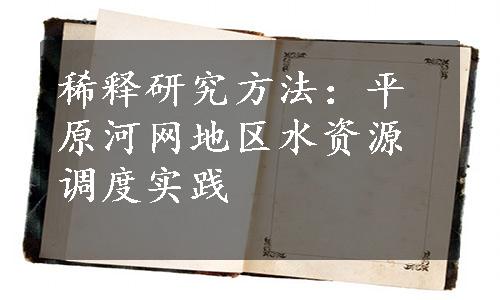 稀释研究方法：平
原河网地区水资源
调度实践